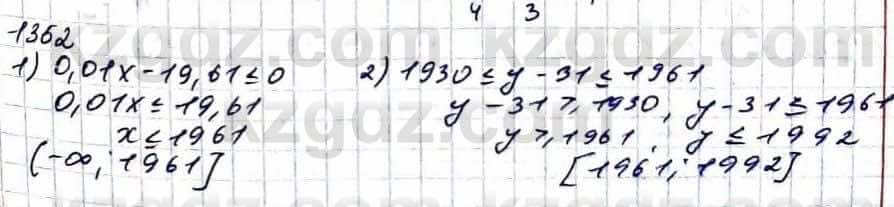 4 3
1352
1) 0,01x - 19,61 ≤ 0
0,01x ≤ 19,61
x ≤ 1961
(-∞; 1961]
2) 1930 ≤ y - 31 ≤ 1961
y - 31 ≥ 1930, y - 31 ≤ 1961
y ≥ 1961, y ≤ 1992
[1961; 1992]
kzgdz.com kzgdz.com
kzgdz.com kzgdz.com